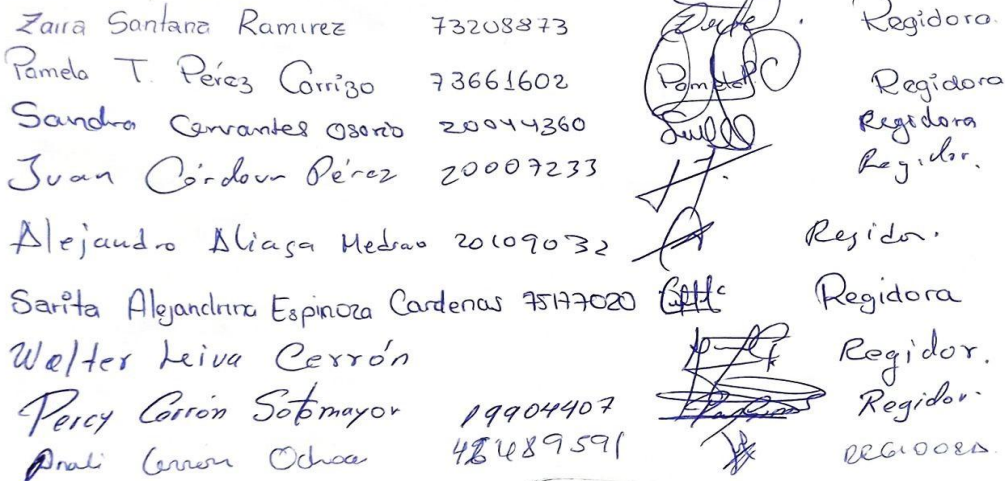 Zaira Santana Ramirez 73208873 Regidora.
Pamela T. Pérez Carrizo 73661602 Pamela Regidora
Sandra Cervantes Osorio 20044360 Regidora
Juan Córdova Pérez 20007233 Regidor.
Alejandro Aliaga Medrano 20109032 Regidor.
Sarita Alejandrina Espinoza Cardenas 75177020 Regidora
Walter Leiva Cerrón Regidor.
Percy Cerrón Sotomayor 19904407 Regidor.
Anali Cerron Ochoa REGIDORA